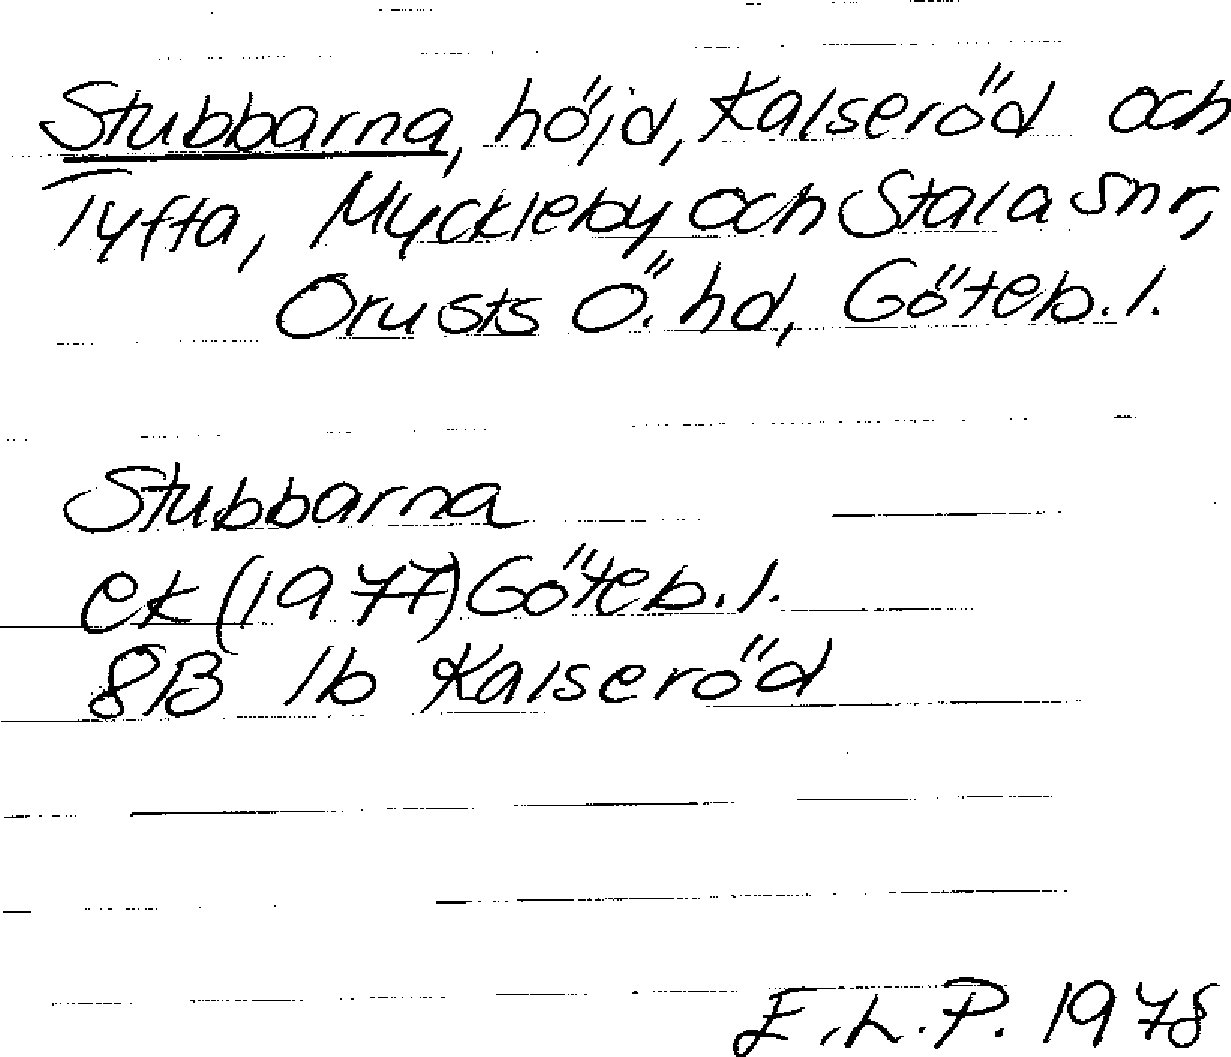 Stubbarna, höjd, Kalseröd och
Tyfta, Myckleby och Stala snr,
Orusts Ö. hd, Göteb. l.
Stubbarna
ek (1977) Göteb. l.
8B 1b Kalseröd
E.L.P. 1978